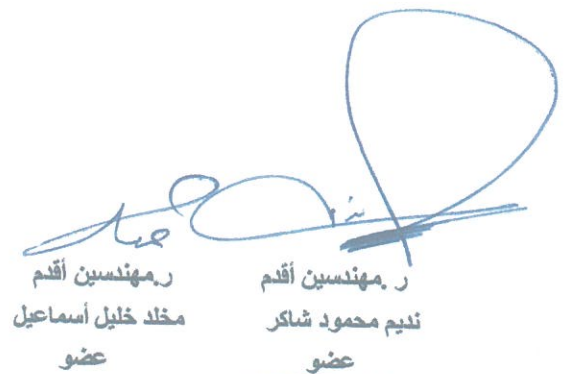 ر.مهندسين أقدم
نديم محمود شاكر
عضو
ر.مهندسين أقدم
مخلد خليل أسماعيل
عضو